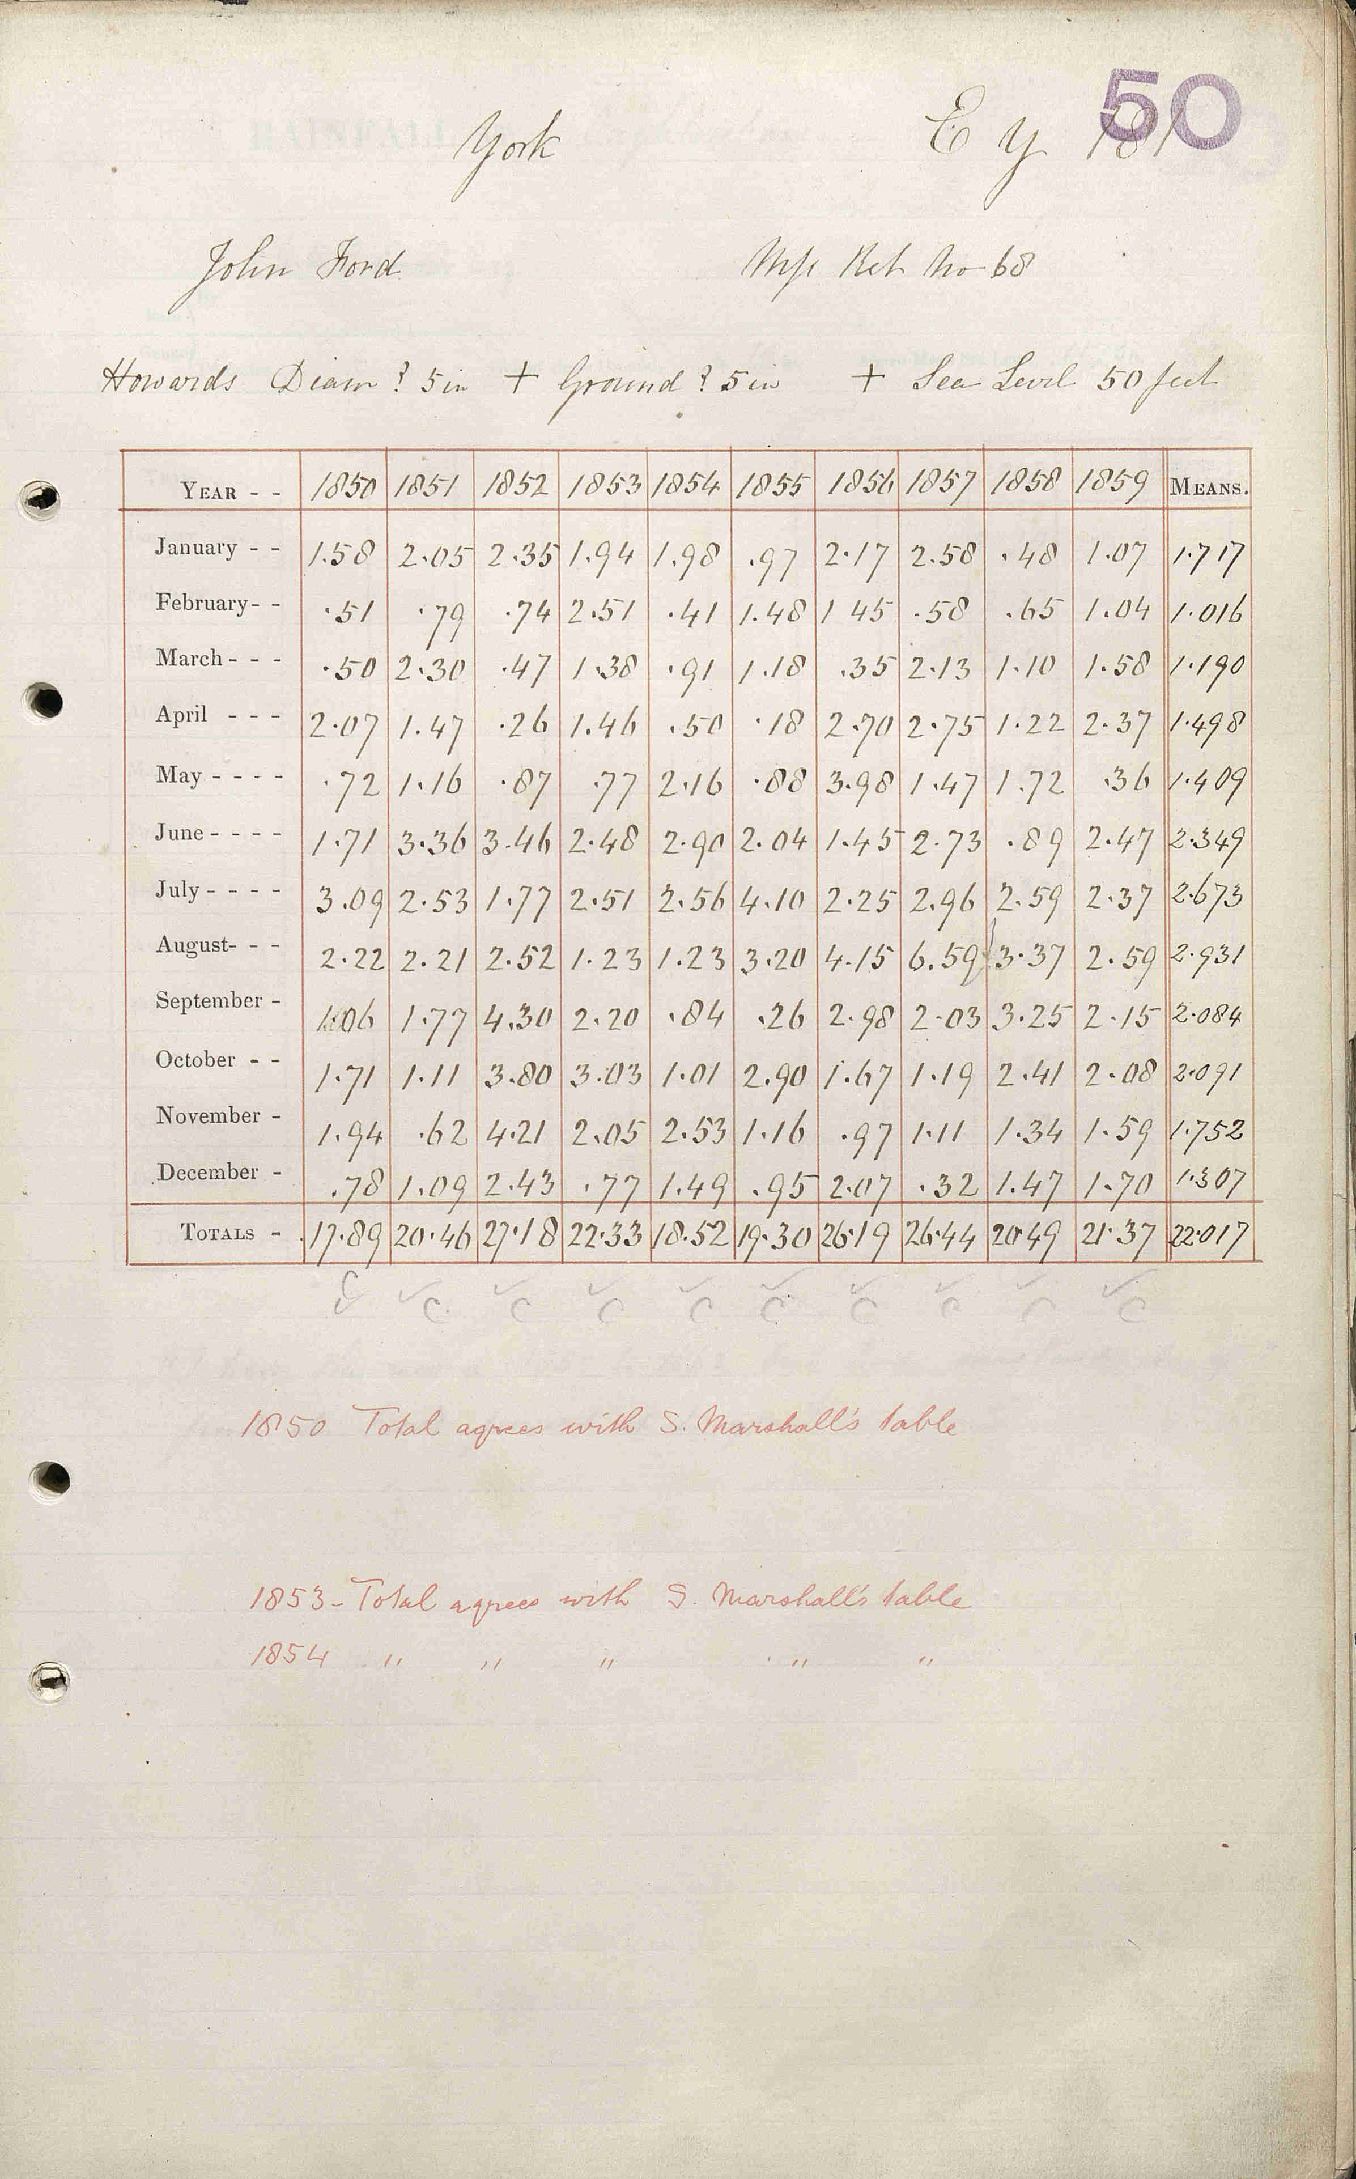 50
York E Y 181
John Ford Mss Ret No 68
Howards Diam ? 5 in + Ground ? 5 in + Sea Level 50 feet
YEAR - - 1850 1851 1852 1853 1854 1855 1856 1857 1858 1859 MEANS.
January - - 1.58 2.05 2.35 1.94 1.98 .97 2.17 2.58 .48 1.07 1.717
February- - .51 .79 .74 2.51 .41 1.48 1 45 .58 .65 1.04 1.016
March- - - .50 2.30 .47 1.38 .91 1.18 .35 2.13 1.10 1.58 1.190
April - - - 2.07 1.47 .26 1.46 .50 .18 2.70 2.75 1.22 2.37 1.498
May - - - - .72 1.16 .87 .77 2.16 .88 3.98 1.47 1.72 .36 1.409
June - - - - 1.71 3.36 3.46 2.48 2.90 2.04 1.45 2.73 .89 2.47 2.349
July - - - - 3.09 2.53 1.77 2.51 2.56 4.10 2.25 2.96 2.59 2.37 2.673
August- - - 2.22 2.21 2.52 1.23 1.23 3.20 4.15 6.59 3.37 2.59 2.931
September - 1.06 1.77 4.30 2.20 .84 .26 2.98 2.03 3.25 2.15 2.084
October - - 1.71 1.11 3.80 3.03 1.01 2.90 1.67 1.19 2.41 2.08 2.091
November - 1.94 .62 4.21 2.05 2.53 1.16 .97 1.11 1.34 1.59 1.752
December - .78 1.09 2.43 .77 1.49 .95 2.07 .32 1.47 1.70 1.307
TOTALS - 17.89 20.46 27.18 22.33 18.52 19.30 26.19 26.44 20.49 21.37 22.017
C C C C C C C C C C
1850 Total agrees with S. Marshall's table
1853 - Total agrees with S. Marshall's table
1854 " " " " "